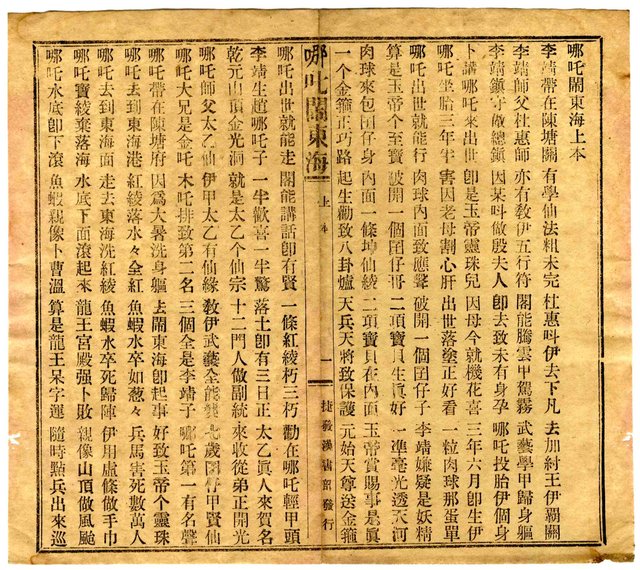 哪吒鬧東海上本
李靖帶在陳塘關 有學仙法粗未完 杜惠叫伊去下凡 去加紂王伊霸關
李靖師父杜惠師 亦有敎伊五行符 閣能騰雲甲駕霧 武藝學甲歸身軀
李靖鎮守做總鎮 因某叫做殷夫人 卽去致未有身孕 哪吒投胎伊個身
卜講哪吒來出世 卽是玉帝靈珠兒 因母今就機花喜 三年六月卽生伊
哪吒坐胎三年半 害因老母割心肝 出世落塗正好看 一粒肉球那蛋單
哪吒出世就能行 肉球內面致應聲 破開一個囝仔子 李靖嫌疑是妖精
算是玉帝个至寶 破開一個囝仔哥 二項寶貝生眞好 一準毫光透天河
肉球來包囝仔身 內面一條坤仙綾 二項寶貝在內面 玉帝賞賜事是眞
一个金箍正巧路 起生勸致八卦爐 天兵天將致保護 元始天尊送金箍
哪吒鬧東海 上本 一 捷發漢書部發行
哪吒出世就能走 閣能講話卽有賢 一條紅綾朽三朽 勸在哪吒輕甲頭
李靖生趙哪吒子 一半歡喜一半驚 落土卽有三日正 太乙眞人來賀名
乾元山頂金光洞 就是太乙个仙宗 十二門人做副統 來收從弟正開光
哪吒師父太乙仙 伊甲太乙有仙緣 敎伊武藝全能 七歲囝仔甲賢仙
哪吒大兄是金吒 木吒排致第二名 三個全是李靖子 哪吒第一有名聲
哪吒帶在陳塘府 因爲大暑洗身軀 去鬧東海卽起事 好致玉帝个靈珠
哪吒去到東海港 紅綾落水々全紅 魚蝦水卒如葱々 兵馬害死數萬人
哪吒去到東海面 走去東海洗紅綾 魚蝦水卒死歸陣 伊用慮條做手巾
哪吒寶綾棄落海 水底下面滾起來 龍王宮殿强卜敗 親像山頂做風颱
哪吒水底卽下滾 魚蝦親像卜曹溫 算是龍王呆字運 隨時點兵出來巡